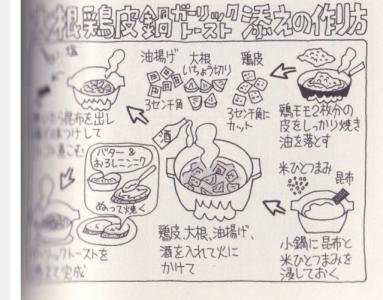 大根鶏皮鍋ガーリックトースト添えの作り方
鶏モモ2枚分の
皮をしっかり焼き
油を落とす
米ひとつまみ
昆布
小鍋に昆布と
米ひとつまみを
浸しておく
鶏皮
3センチ角に
カット
大根
いちょう切り
油揚げ
3センチ角
酒
鶏皮、大根、油揚げ、
酒を入れて火に
かけて
塩
いたら昆布を出し
つけして
こむ
バター&
おろしニンニク
ぬって焼く
トーストを
えて完成